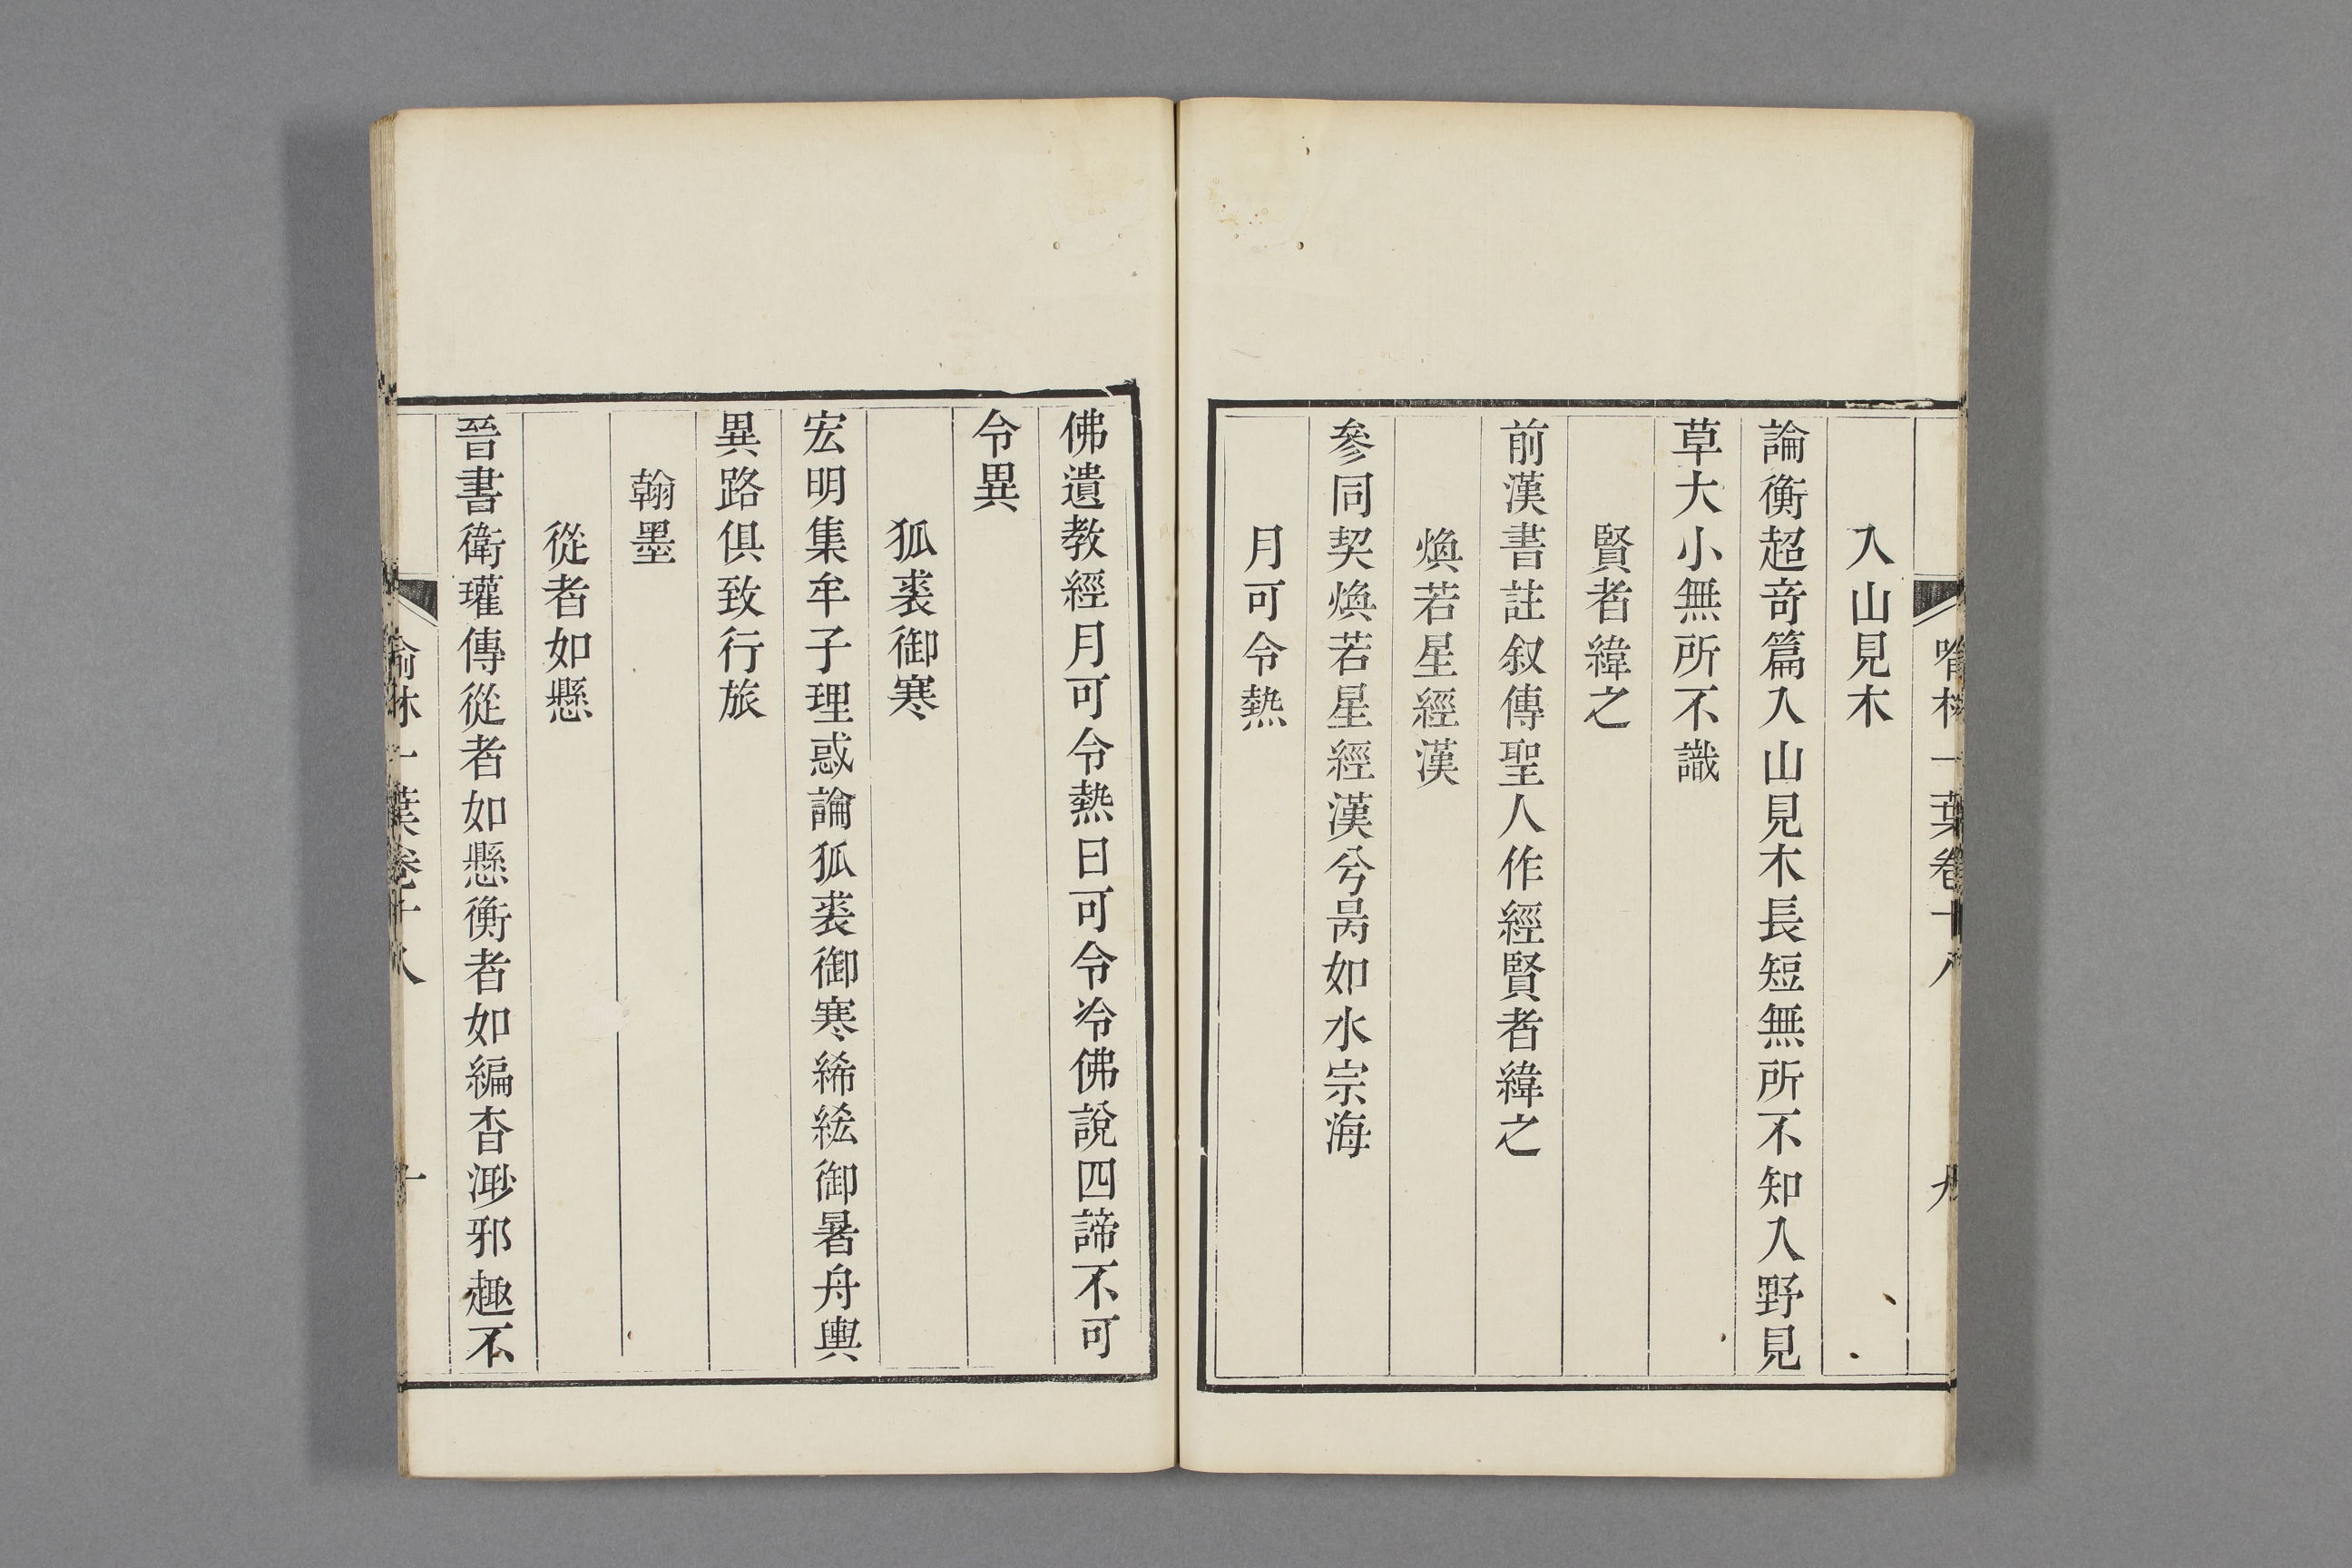 喻林一葉卷十八
九
入山見木
論衡超奇篇入山見木長短無所不知入野見
草大小無所不識
賢者緯之
前漢書註叙傳聖人作經賢者緯之
煥若星經漢
參同契煥若星經漢兮昺如水宗海
月可令熱
佛遺教經月可令熱日可令冷佛說四諦不可
令異
狐裘御寒
宏明集牟子理惑論狐裘御寒絺綌御暑舟輿
異路俱致行旅
翰墨
從者如懸
晉書衛瓘傳從者如懸衡者如編杳渺邪趣不
喻林一葉卷十八
十